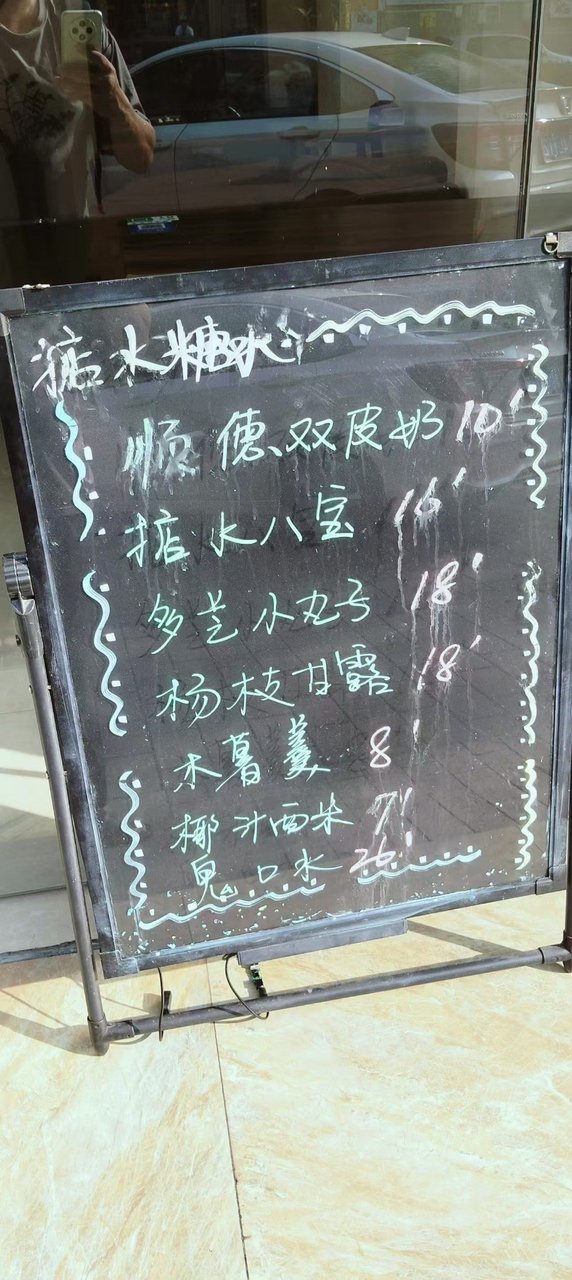 掂水糖水
顺德双皮奶 10'
掂水八宝 16'
多芒小丸子 18'
杨枝甘露 18'
木薯羹 8'
椰汁西米 7'
鬼口水 26'